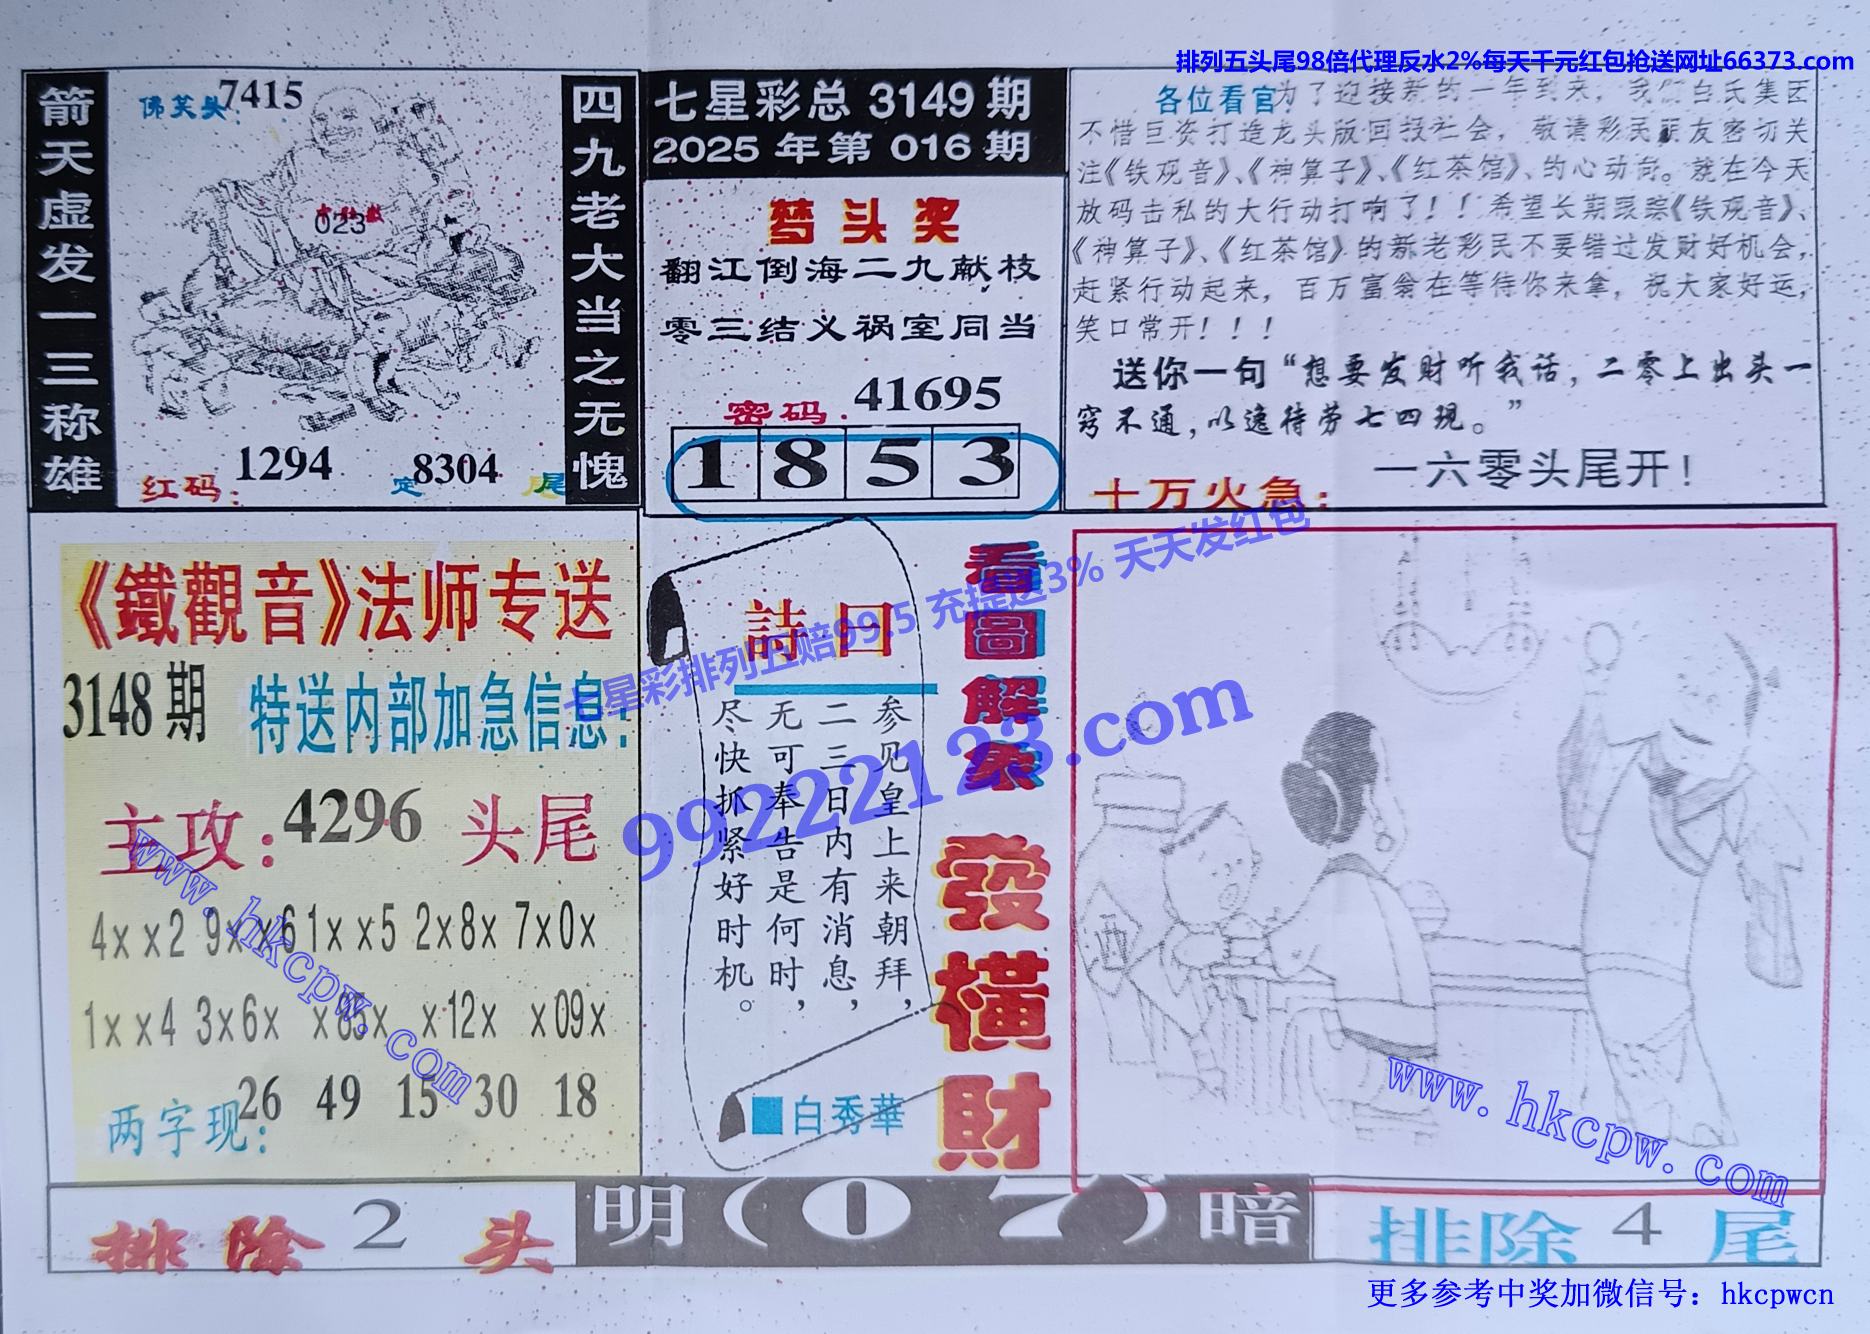 排列五头尾98倍代理反水2%每天千元红包抢送网址66373.com
箭天虚发一三称雄
佛笑头:
7415
023
红码:
1294
定
8304
尾
四九老大当之无愧
七星彩总 3149 期
2025 年第 016 期
梦头奖
翻江倒海二九献枝
零三结义祸室同当
密码.
41695
1 8 5 3
各位看官为了迎接新的一年到来，我们白氏集团
不惜巨资打造龙头版回投社会，敬请彩民朋友密切关
注《铁观音》、《神算子》、《红茶馆》、的心动向。就在今天
放码击私的大行动打响了！！希望长期跟踪《铁观音》、
《神算子》、《红茶馆》的新老彩民不要错过发财好机会，
赶紧行动起来，百万富翁在等待你来拿，祝大家好运，
笑口常开！！！
送你一句“想要发财听我话，二零上出头一
窍不通，以逸待劳七四现。”
十万火急:
一六零头尾开!
《鐵觀音》法师专送
3148 期
特送内部加急信息:
主攻:4296 头尾
4xx2 9xx6 1xx5 2x8x 7x0x
1xx4 3x6x x85x x12x x09x
两字现:
26 49 15 30 18
詩曰
参见皇上来朝拜，
二三日内有消息，
无可奉告是何时，
尽快抓紧好时机。
■白秀華
看圖解象
發橫財
酒
七星彩排列五赔99.5 充提送3% 天天发红包
99222123.com
www.hkcpw.com
www.hkcpw.com
排除 2 头
明(07)暗
排除 4 尾
更多参考中奖加微信号：hkcpwcn